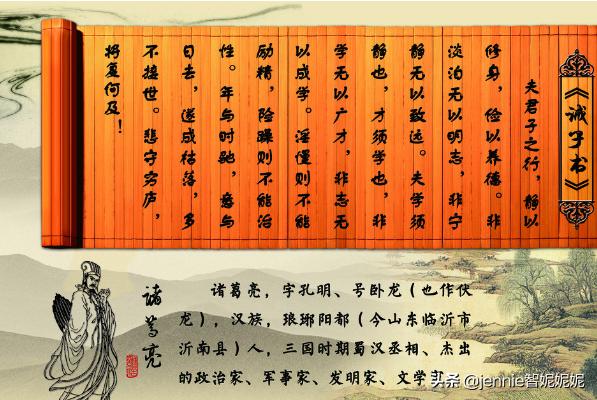 《诫子书》
夫君子之行，静以
修身，俭以养德。非
淡泊无以明志，非宁
静无以致远。夫学须
静也，才须学也，非
学无以广才，非志无
以成学。淫慢则不能
励精，险躁则不能治
性。年与时驰，意与
日去，遂成枯落，多
不接世。悲守穷庐，
将复何及！
诸葛亮
诸葛亮，字孔明、号卧龙（也作伏
龙），汉族，琅琊阳都（今山东临沂市
沂南县）人，三国时期蜀汉丞相、杰出
的政治家、军事家、发明家、文学
头条 @jennie智妮妮妮